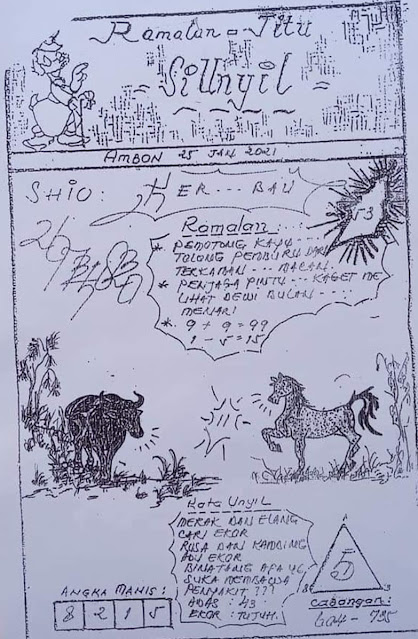 Ramalan - Jitu
- SiUnyil -
AMBON 25 JAN 2021
SHIO: KER... BAU
53
Ramalan:
* PEMOTONG KAYU...
TOLONG PEMBURU DARI
TERKAMAN... MACAN.
* PENJAGA PINTU... KAGET ME
LIHAT DEWI BULAN...
MENARI
* 9 + 9 = 99
1 - 5 = 15
Kata Unyil
MERAK DAN ELANG
CARI EKOR
RUSA DAN KAMBING
ADU EKOR
BINATANG APA YG
SUKA MEMBAWA
PENYAKIT ???
ADAS : 43
EKOR : TUJUH.
ANGKA MANIS:
8 2 1 5
5
8 3
Cabangan:
604 - 795